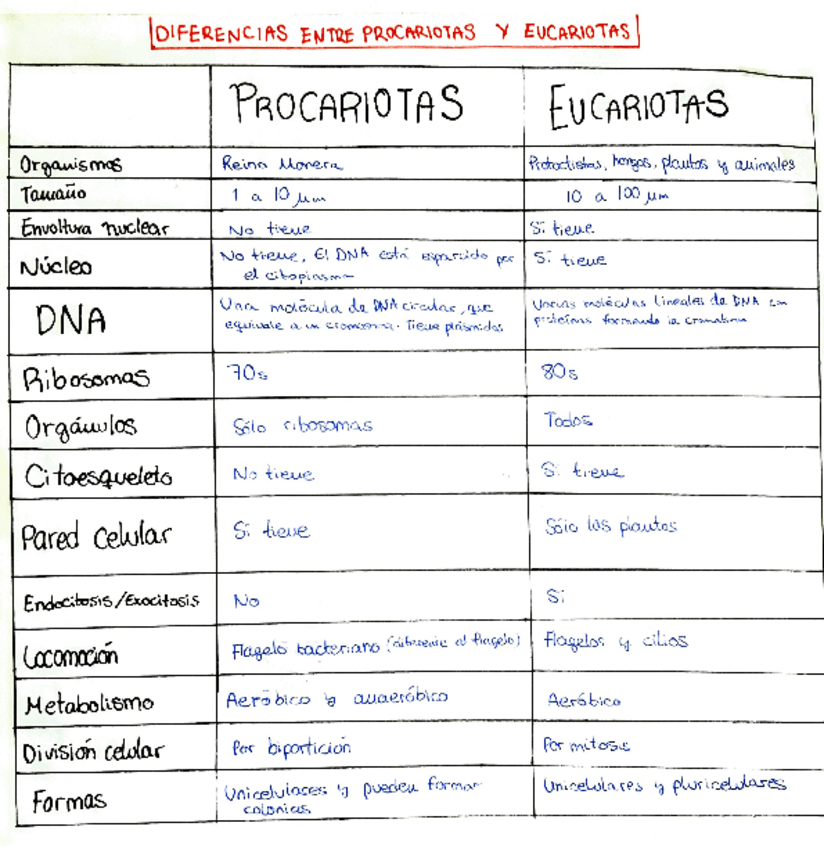 DIFERENCIAS ENTRE PROCARIOTAS Y EUCARIOTAS
PROCARIOTAS EUCARIOTAS
Organismos Reino Monera Protoctistas, hongos, plantas y animales
Tamaño 1 a 10 µm 10 a 100 µm
Envoltura nuclear No tiene Si tiene
Núcleo No tiene, El DNA está esparcido por Si tiene
el citoplasma
DNA Una molécula de DNA circular, que Varias moléculas lineales de DNA con
equivale a un cromosoma. Tiene plásmidos proteínas formando la cromatina
Ribosomas 70s 80s
Orgánulos Sólo ribosomas Todos
Citoesqueleto No tiene Si tiene
Pared celular Si tiene Sólo las plantas
Endocitosis/Exocitosis No Si
Locomoción Flagelo bacteriano (diferente al flagelo) Flagelos y cilios
Metabolismo Aeróbico y anaeróbico Aeróbico
División celular Por bipartición Por mitosis
Formas Unicelulares y pueden formar Unicelulares y pluricelulares
colonias